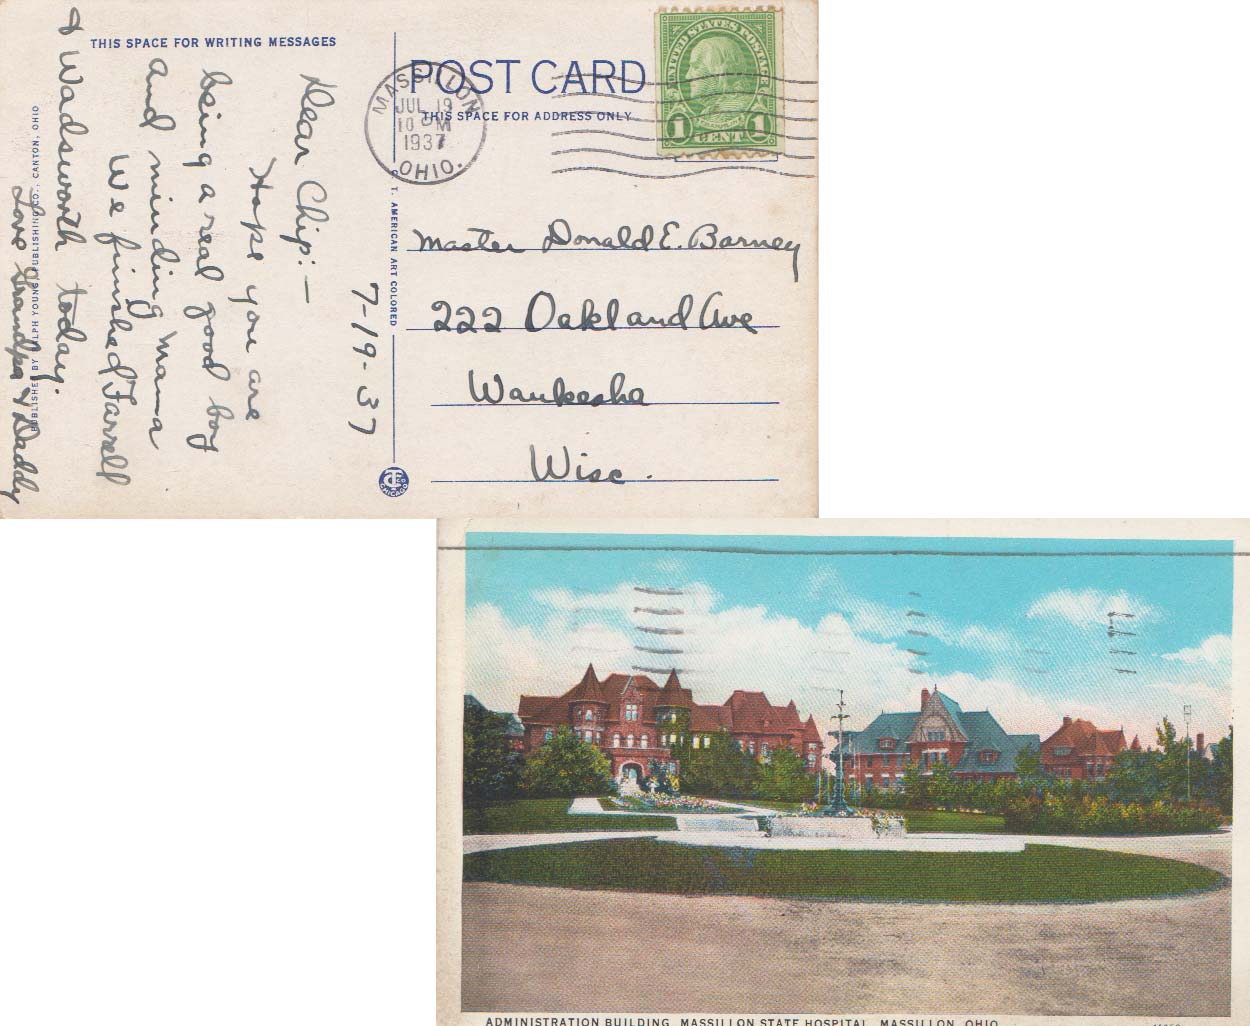 THIS SPACE FOR WRITING MESSAGES
7-19-37
Dear Chip:-
Hope you are
being a real good boy
and minding mama
We finished Farrell
& Wadsworth today.
Love Grandpa & Daddy
PUBLISHED BY RALPH YOUNG PUBLISHING CO., CANTON, OHIO
C. T. AMERICAN ART COLORED
POST CARD
THIS SPACE FOR ADDRESS ONLY
MASSILLON
JUL 19
10 PM
1937
OHIO.
UNITED STATES POSTAGE
1 CENT 1
Master Donald E. Barney
222 Oakland Ave
Waukesha
Wisc.
CHICAGO
ADMINISTRATION BUILDING, MASSILLON STATE HOSPITAL, MASSILLON, OHIO